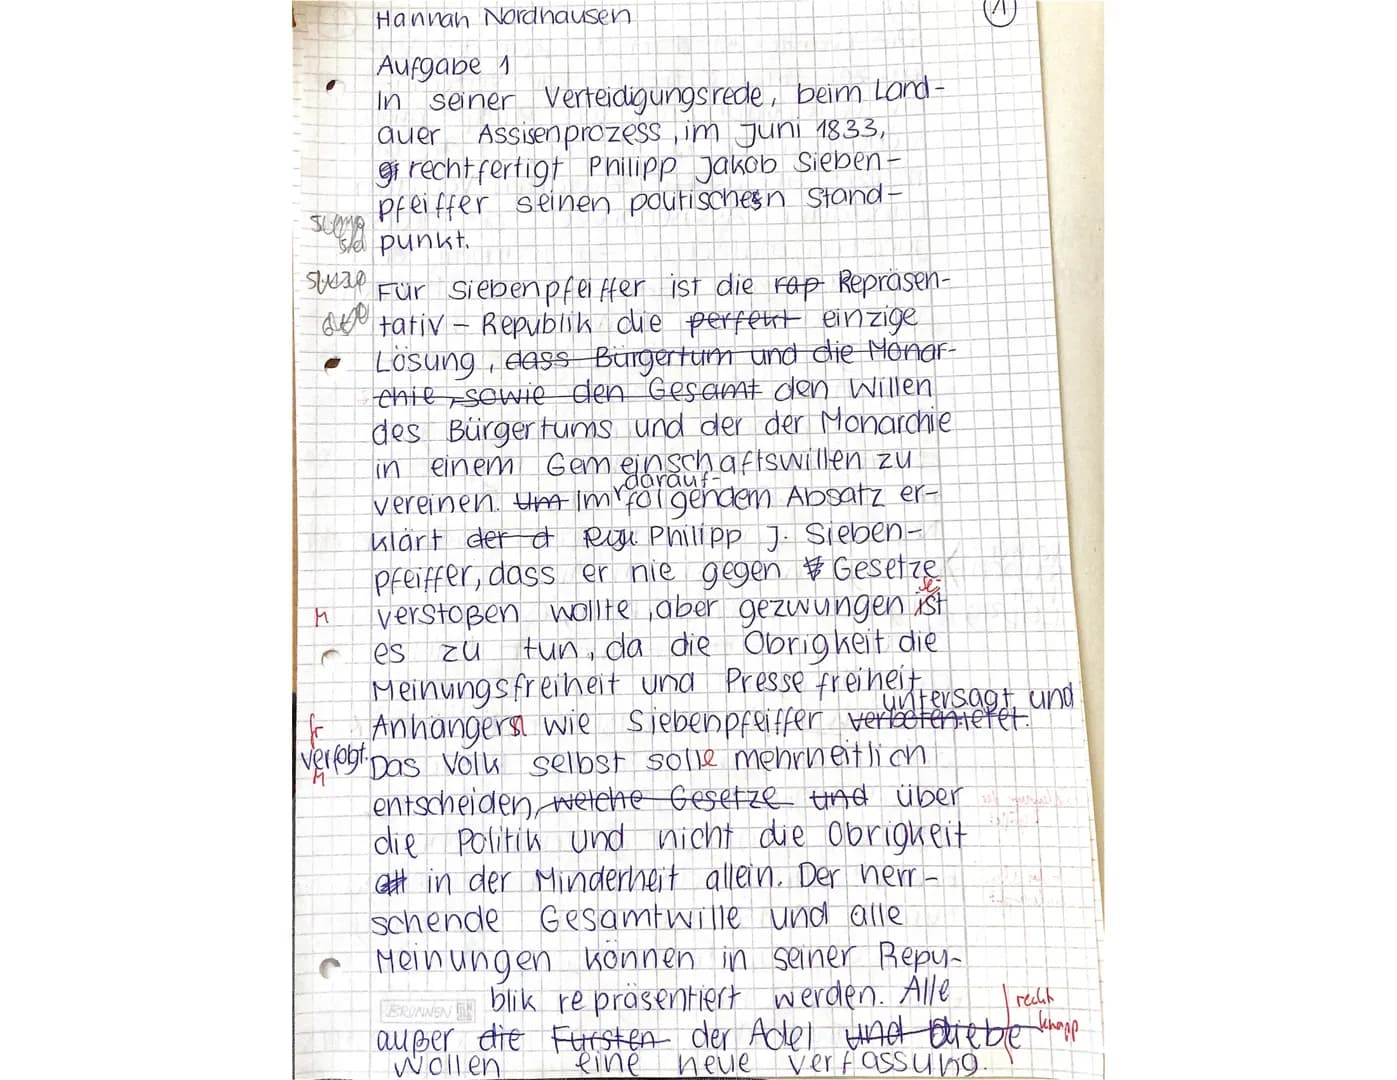 Hannah Nordhausen
1
Aufgabe 1
In seiner Verteidigungsrede, beim Land-
auer Assisenprozess, im Juni 1833,
rechtfertigt Philipp Jakob Sieben-
pfeiffer seinen politischen Stand-
punkt.
Für Siebenpfeiffer ist die rap Repräsen-
tativ - Republik die perfekt einzige
Lösung, dass Bürgertum und die Monar-
chie, sowie den Gesamt den Willen
des Bürgertums und der der Monarchie
in einem Gemeinschaftswillen zu
darauf-
vereinen. Um Im folgendem Absatz er-
klärt der d Philipp J. Sieben-
pfeiffer, dass er nie gegen Gesetze
M verstoßen wollte, aber gezwungen ist
es zu tun, da die Obrigkeit die
Meinungsfreiheit und Pressefreiheit
untersagt und
Anhänger wie Siebenpfeiffer
verfolgt. Das Volk selbst solle mehrheitlich
entscheiden, welche Gesetze und über
die Politik und nicht die Obrigkeit
in der Minderheit allein. Der herr-
schende Gesamtwille und alle
Meinungen können in seiner Repu-
BRUNNEN
blik repräsentiert werden. Alle
recht
knapp
außer die Fürsten der Adel und
wollen eine neue Verfassung.